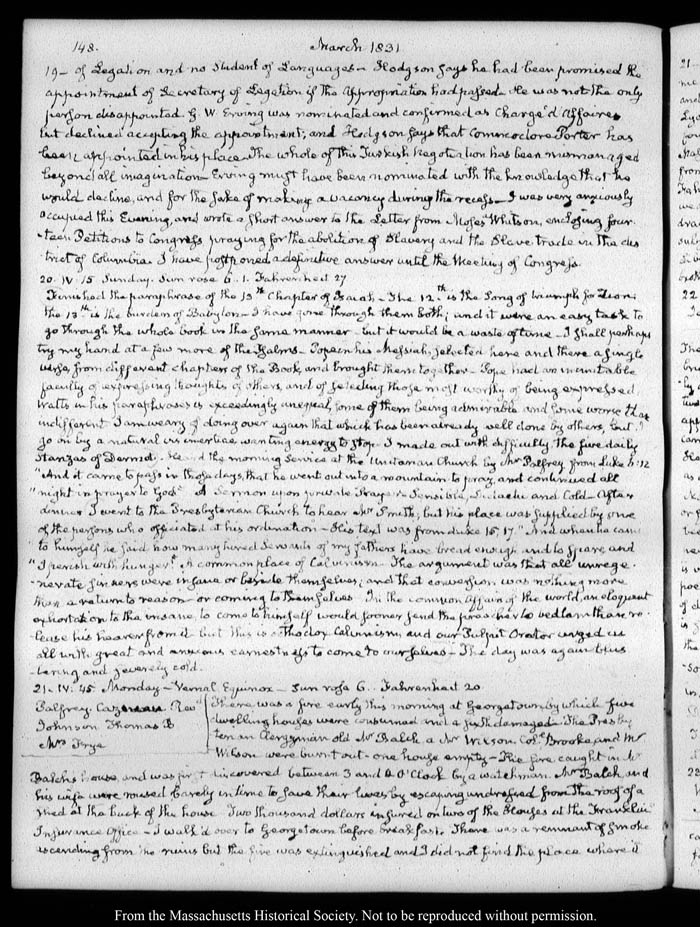 148.
March 1831
19- of Legation and no Student of Languages - Hodgson says he had been promised the
appointment of Secretary of Legation if the appropriation had passed - He was not the only
person disappointed. G. W. Erving was nominated and confirmed as Chargé d'Affaires
but declined accepting the appointment; and Hodgson says that Commodore Porter has
been appointed in his place. The whole of this Turkish Negotiation has been mismanaged
beyond all imagination - Erving must have been nominated with the knowledge that he
would decline, and for the sake of making a vacancy during the recess - I was very anxiously
occupied this Evening, and wrote a short answer to the Letter from Moses Whitson, enclosing four-
teen Petitions to Congress praying for the abolition of Slavery and the Slave trade in the dis
trict of Columbia. I have postponed a definitive answer until the Meeting of Congress.
20. IV. 15 Sunday. Sun rose 6. 1. Fahrenheit 27
Finished the paraphrase of the 13th Chapter of Isaiah - The 12th is the Song of triumph for Zion;
the 13th is the burden of Babylon - I have gone through them both; and it were an easy task to
go through the whole book in the same manner - but it would be a waste of time - I shall perhaps
try my hand at a few more of the Psalms - Pope in his Messiah, selected here and there a single
verse, from different chapters of the Book, and brought them together - Pope had an inimitable
faculty of expressing thoughts of others, and of selecting those most worthy of being expressed
Watts in his paraphrases is exceedingly unequal, some of them being admirable and some worse than
indifferent I am weary of doing over again that which has been already well done by others, but I
go on by a natural vis inertiae wanting energy to stop. I made out with difficulty the five daily
Stanzas of Dermot. Heard the morning Service at the Unitarian Church by Mr Palfrey from Luke 6:12
"And it came to pass in those days, that he went out into a mountain to pray, and continued all
"night in prayer to God" A Sermon upon private Prayer - Sensible, and Cold - After
dinner I went to the Presbyterian Church to hear Mr Smith, but his place was supplied by one
of the persons who officiated at his ordination - His text was from Luke 15. 17. "And when he came
to himself he said how many hired Servants of my fathers have bread enough and to spare, and
"I perish with hunger". A common place of Calvinism - The argument was that all unrege-
-nerate sinners were insane or beside themselves; and that conversion was nothing more
than a return to reason - or coming to themselves. In the common affairs of the world, an eloquent
exhortation to the insane, to come to himself would sooner send the preacher to bedlam than re-
lease his hearer from it but this is orthodox Calvinism, and our Pulpit Orator urged us
all with great and anxious earnestness to come to ourselves - The day was again blus
-tering and severely cold.
21. IV. 45. Monday - Vernal Equinox - Sun rose 6. Fahrenheit 20
Palfrey. Cazneau Revd
Johnson Thomas B
Mrs Frye
There was a fire early this morning at Georgetown by which five
dwelling houses were consumed and a sixth damaged - The Presby
terian Clergyman old Mr Balch, a Mr Wilson, Coll Brooke and Mr
Wilson were burnt out - one house empty - The fire caught in Mr
Balch's house, and was first discovered between 3 and 4 O'Clock by a watchman. Mr Balch and
his wife were roused barely in time to save their lives by escaping undressed from the roof of a
shed at the back of the house Two thousand dollars insured on two of the Houses at the Franklin
Insurance Office - I walk'd over to Georgetown before breakfast. There was a remnant of smoke
ascending from the ruins but the fire was extinguished and I did not find the place where it
From the Massachusetts Historical Society. Not to be reproduced without permission.